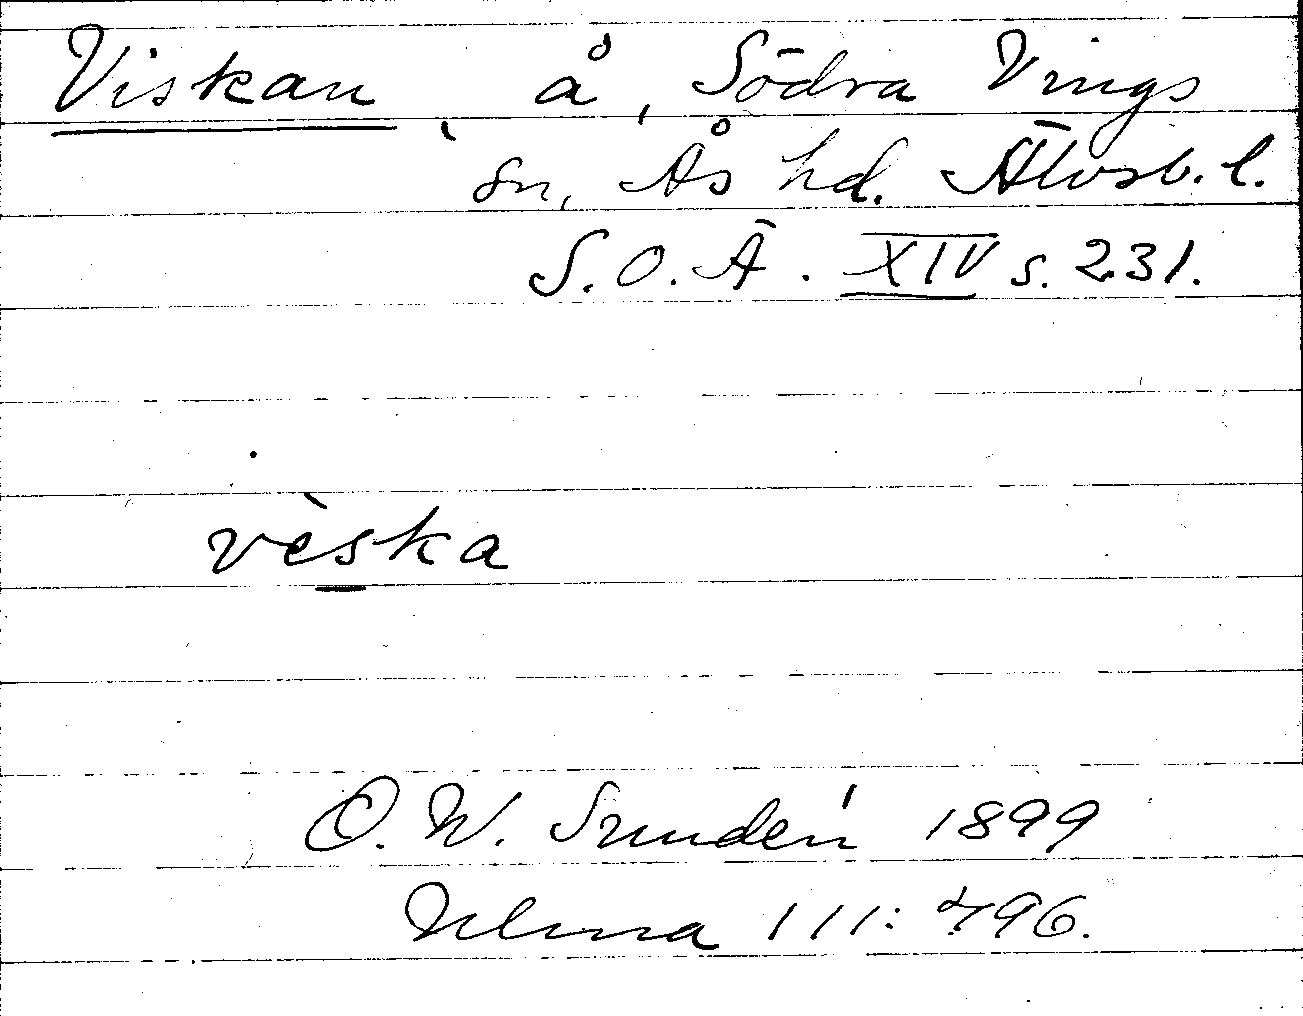 Viskan, å, Södra Vings
sn, Ås hd. Älvsb. l.
S. O. Ä. XIV s. 231.
vèska
O. W. Sundén 1899
Ulma 111: 496.